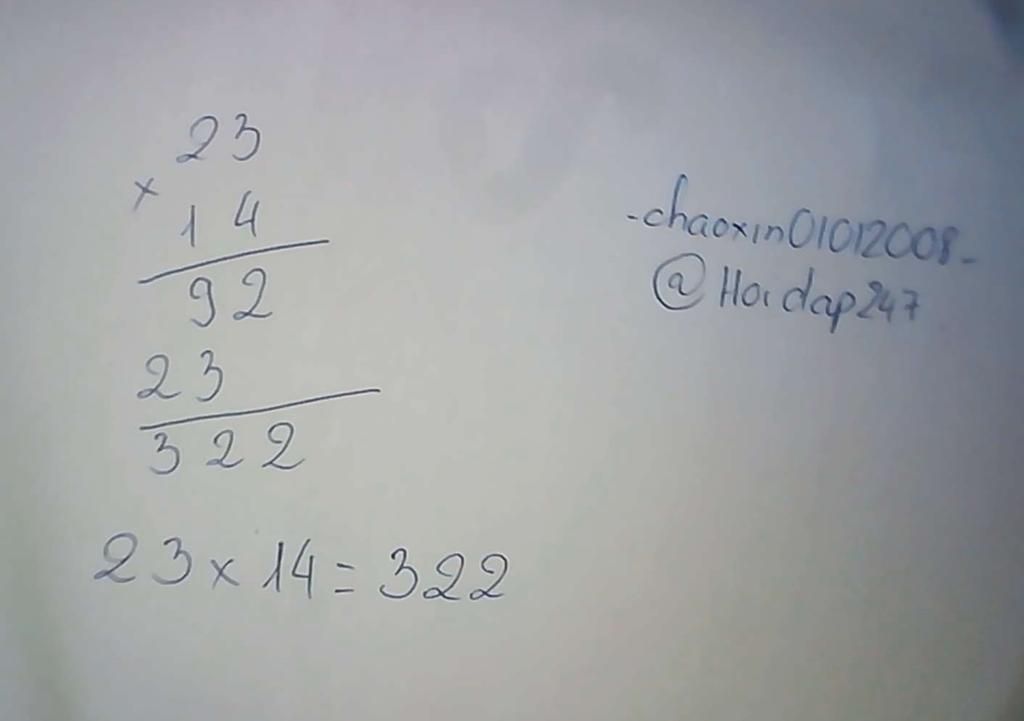 23
×
14
92
23
322
23 × 14 = 322
-chaoxin01012008-
@Hoidap247